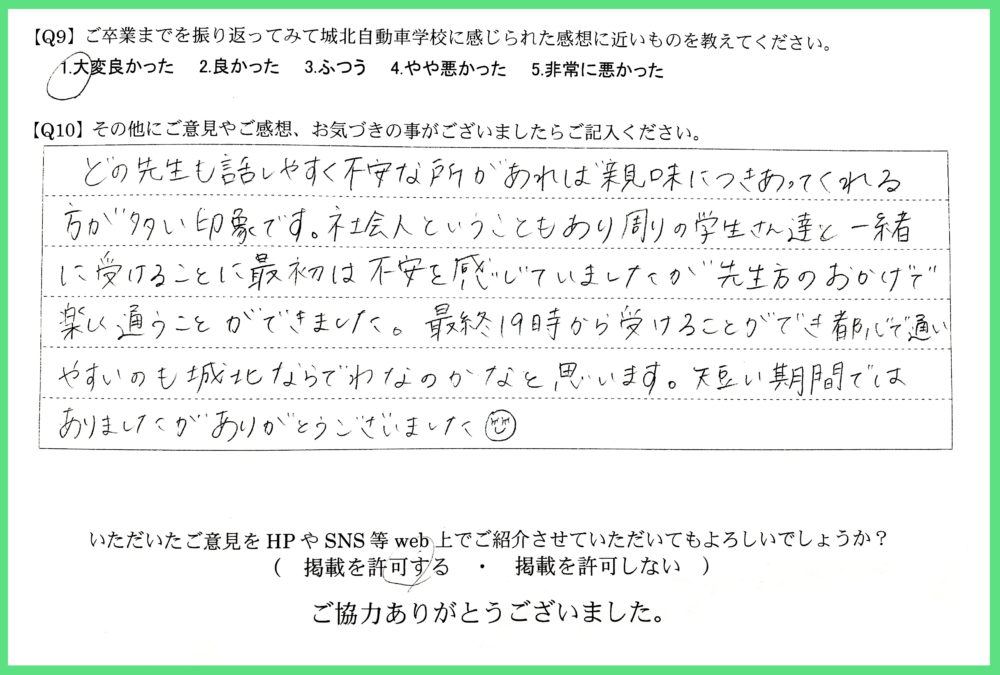 【Q9】ご卒業までを振り返ってみて城北自動車学校に感じられた感想に近いものを教えてください。
1.大変良かった 2.良かった 3.ふつう 4.やや悪かった 5.非常に悪かった
【Q10】その他にご意見やご感想、お気づきの事がございましたらご記入ください。
どの先生も話しやすく不安な所があれば親味につきあってくれる
方が多い印象です。社会人ということもあり周りの学生さん達と一緒
に受けることに最初は不安を感じていましたが先生方のおかげで
楽しく通うことができました。最終19時から受けることができ都心で通い
やすいのも城北ならでわなのかなと思います。短い期間では
ありましたがありがとうございました
いただいたご意見をHPやSNS等web上でご紹介させていただいてもよろしいでしょうか?
( 掲載を許可する ・ 掲載を許可しない )
ご協力ありがとうございました。